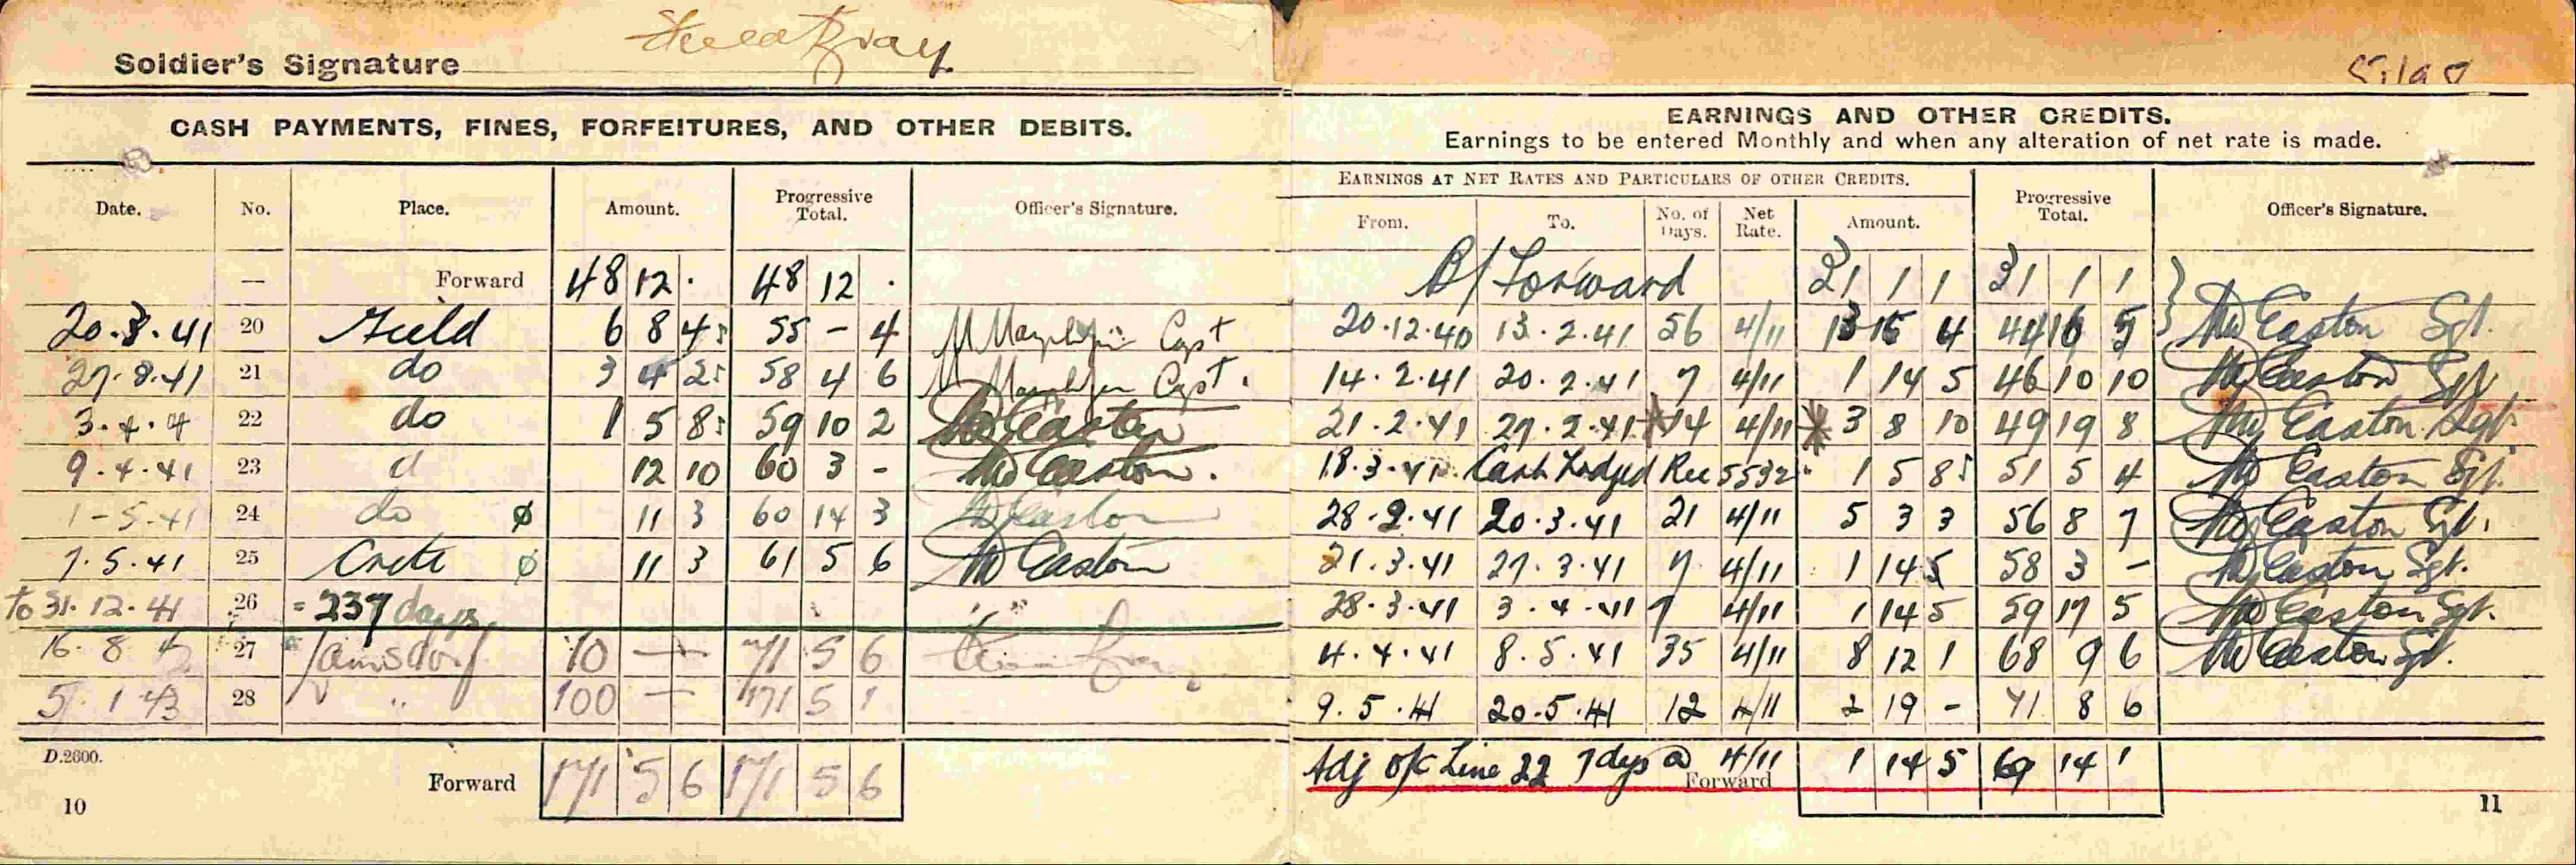 Soldier's Signature
CASH PAYMENTS, FINES, FORFEITURES, AND OTHER DEBITS.
Date. No. Place. Amount. Progressive Total. Officer's Signature.
— Forward 48 12 · 48 12 ·
20.3.41 20 Field 6 8 4 55 - 4 Capt
27.8.41 21 do 3 4 2 58 4 6 Capt.
3.4.4 22 do 1 5 8 59 10 2 Easton
9.4.41 23 d 12 10 60 3 - Easton.
1-5-41 24 do ø 11 3 60 14 3 Easton
7.5.41 25 Crete ø 11 3 61 5 6 Easton
To 31.12.41 26 = 237 days
16. 8 4 27 Lamsdorf 10 — 71 5 6
5. 1 43 28 " 100 — 171 5 1
D.2600.
Forward 171 5 6 171 5 6
10
EARNINGS AND OTHER CREDITS.
Earnings to be entered Monthly and when any alteration of net rate is made.
EARNINGS AT NET RATES AND PARTICULARS OF OTHER CREDITS.
From. To. No. of Days. Net Rate. Amount. Progressive Total. Officer's Signature.
B/Forward 31 1 1 31 1 1
20.12.40 13.2.41 56 4/11 13 15 4 44 16 5 Easton Sgt.
14.2.41 20.2.41 7 4/11 1 14 5 46 10 10 Easton Sgt
21.2.41 27.2.41 14 4/11 3 8 10 49 19 8 Easton Sgt.
18.3.41 Cash Lodged Rec 5532 1 5 8 51 5 4 Easton Sgt.
28.2.41 20.3.41 21 4/11 5 3 3 56 8 7 Easton Sgt.
21.3.41 27.3.41 7 4/11 1 14 5 58 3 - Easton Sgt.
28.3.41 3.4.41 7 4/11 1 14 5 59 17 5 Easton Sgt.
4.4.41 8.5.41 35 4/11 8 12 1 68 9 6 Easton Sgt.
9.5.41 20.5.41 12 4/11 2 19 - 71 8 6
Adj o/c Line 22 7 days @ 4/11 Forward 1 14 5 69 14 1
11